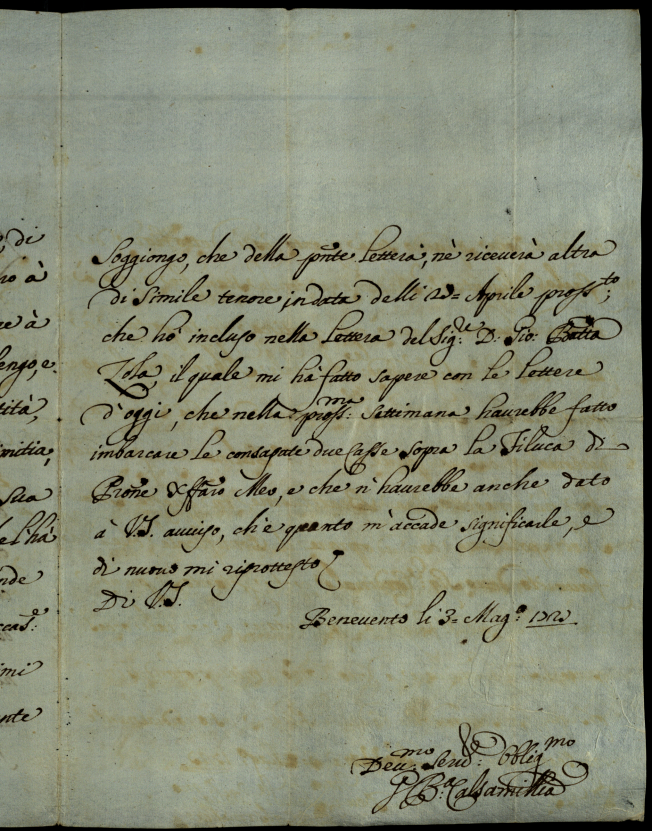 di
Soggiongo, che della pñte lettera, nè riceuerà altra
di simile tenore, in data delli Aprile pross:to;
che hò incluso nella lettera del Sig:re D: Gio: Batta
Tosa, il quale mi hà fatto sapere con le lettere
d'oggi, che nella pross:ma settimana haurebbe fatto
imbarcare le consapute due Casse sopra la Filuca di
Prone Meo, e che n'haurebbe anche dato
à V.S. auuiso, ch'è quanto m'accade significarle, e
di nuouo mi riprottesto
Di V.S.
Beneuento li 3= Mag:o
Deu:mo Seru:e Oblig:mo
G: B:a